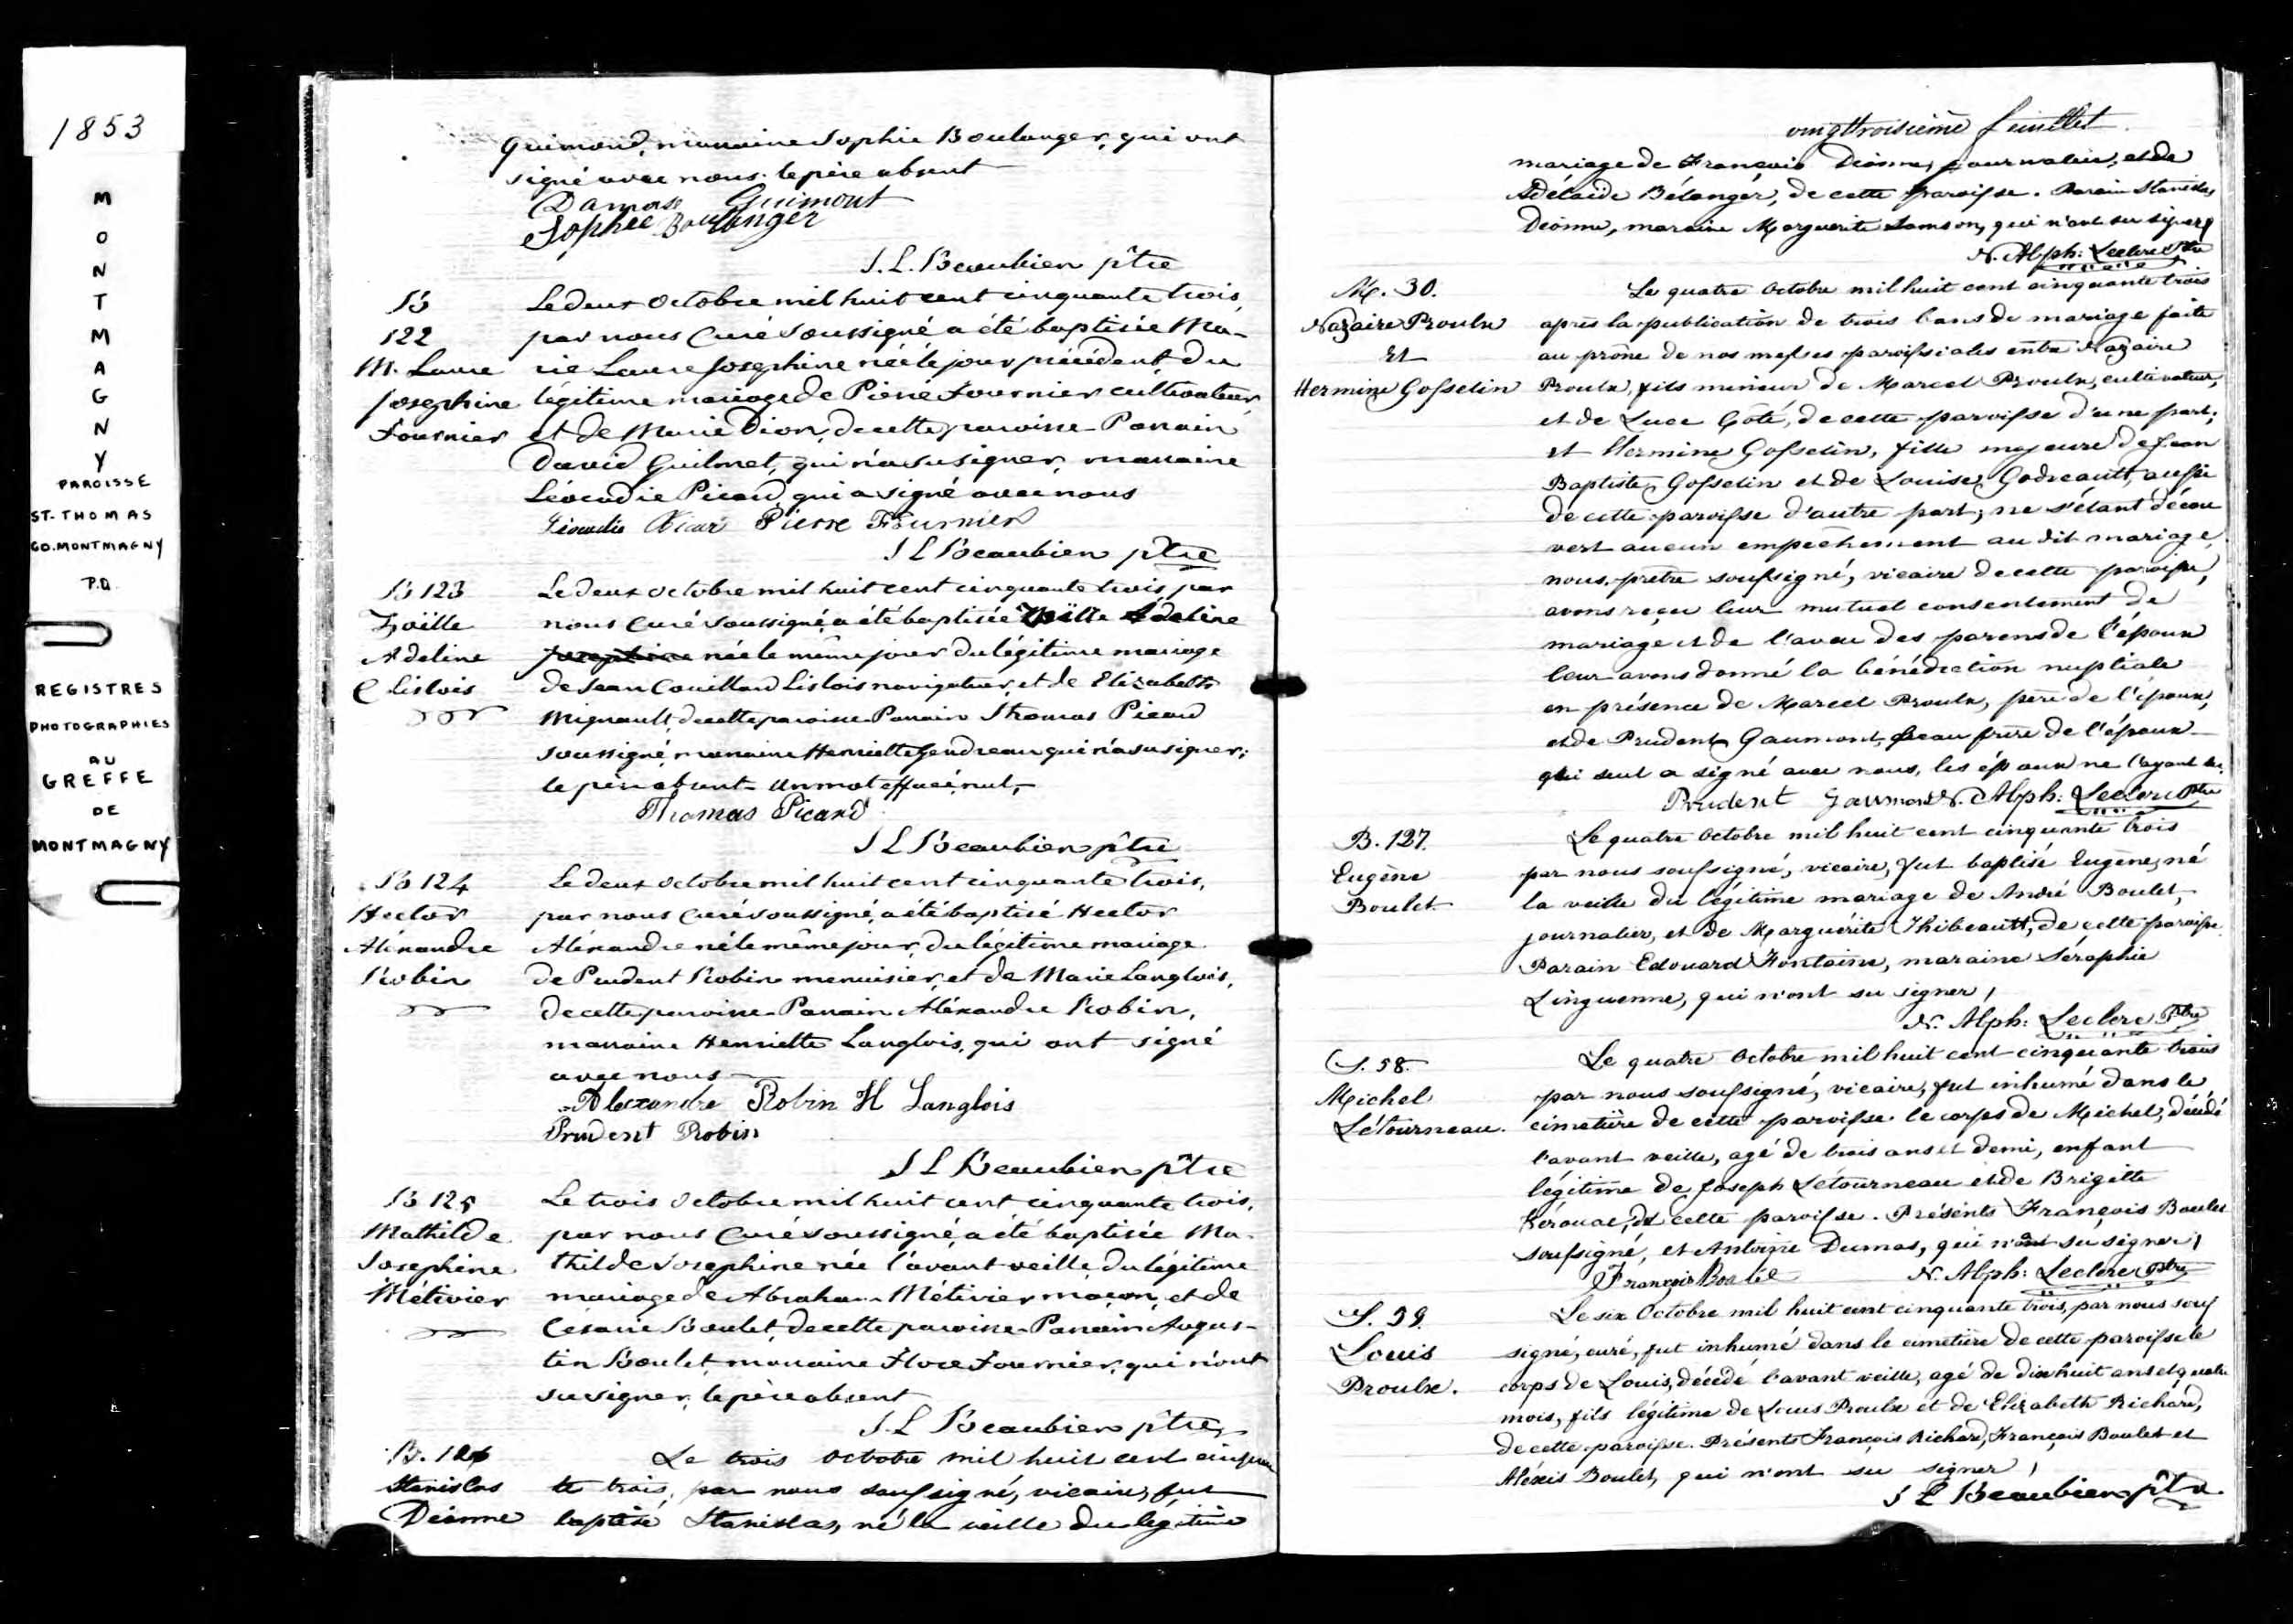 1853
MONTMAGNY
PAROISSE
ST-THOMAS
CO. MONTMAGNY
P.Q.
REGISTRES
PHOTOGRAPHIES
AU
GREFFE
DE
MONTMAGNY
Guimond, marraine Sophie Boulanger, qui ont
signé avec nous. le père absent
Damase Guimont
Sophie Boulanger
J. L. Beaubien ptre
B
122
M. Laure
Josephine
Fournier
Le deux Octobre mil huit cent cinquante trois,
par nous Curé Soussigné a été baptisée Ma-
rie Laure Josephine née le jour précédent, du
légitime mariage de Pierre Fournier cultivateur,
et de Marie Dion, de cette paroisse. Parrain
David Guilmet, qui n'a su signer, marraine
Léocadie Picard qui a signé avec nous
Léocadie Picar Pierre Fournier
J L Beaubien ptre
B 123
Zoïlle
Adeline
C Lislois
Le deux octobre mil huit cent cinquante trois par
nous Curé soussigné, a été baptisée Zoïlle Adeline
Josephine née le même jour du légitime mariage
de Jean Couillard Lislois navigateur, et de Elizabeth
Mignault, de cette paroisse. Parrain Thomas Picard
soussigné, marraine Henriette Gendreau qui n'a su signer;
le père absent. Un mot effacé, nul,
Thomas Picard
J L Beaubien ptre
B 124
Hector
Aléxandre
Robin
Le deux octobre mil huit cent cinquante trois,
par nous Curé soussigné, a été baptisé Hector
Aléxandre né le même jour, du légitime mariage
de Prudent Robin menuisier, et de Marie Langlois,
de cette paroisse. Parrain Aléxandre Robin,
marraine Henriette Langlois, qui ont signé
avec nous
Alexandre Robin H Langlois
Prudent Robin
J L Beaubien ptre
B 125
Mathilde
Josephine
Métivier
Le trois Octobre mil huit cent cinquante trois,
par nous Curé soussigné, a été baptisée Ma-
thilde Josephine née l'avant veille, du légitime
mariage de Abraham Métivier maçon, et de
Césarie Boulet, de cette paroisse. Parrain Augus-
tin Boulet, marraine Flore Fournier, qui n'ont
su signer, le père absent
J. L Beaubien ptre,
B. 126
Stanislas
Dionne
Le trois octobre mil huit cent cinquan
te trois, par nous soussigné, vicaire, fut
baptisé Stanislas, né la veille du légitime
vingttroisième feuillet.
mariage de François Dionne, journalier, et de
Adélaïde Bélanger, de cette paroisse. Parain Stanislas
Dionne, maraine Marguerite Samson, qui n'ont su signer
N. Alph: Leclerc Ptre
M. 30.
Nazaire Proulx
Et
Hermine Gosselin
Le quatre Octobre mil huit cent cinquante trois
après la publication de trois bans de mariage faite
au prône de nos messes paroissiales entre Nazaire
Proulx, fils mineur de Marcel Proulx, cultivateur,
et de Luce Côté, de cette paroisse d'une part;
et Hermine Gosselin, fille majeure de Jean
Baptiste Gosselin et de Louise Godreault, aussi
de cette paroisse d'autre part; ne s'étant décou
vert aucun empêchement au dit mariage,
nous, prêtre soussigné, vicaire de cette paroisse,
avons reçu leur mutuel consentement de
mariage et de l'aveu des parens de l'époux
leur avons donné la bénédiction nuptiale
en présence de Marcel Proulx, père de l'époux,
et de Prudent Gaumont, beau frère de l'époux
qui seul a signé avec nous, les époux ne l'ayant su.
Prudent Gaumont N. Alph: Leclerc Ptre
B. 127.
Eugène
Boulet
Le quatre Octobre mil huit cent cinquante trois
par nous soussigné, vicaire, fut baptisé Eugène, né
la veille du légitime mariage de André Boulet,
journalier, et de Marguérite Thibeault, de cette paroisse.
Parain Edouard Fontaine, maraine Séraphie
Linguenne, qui n'ont su signer,
N. Alph: Leclerc Ptre
S. 58.
Michel
Létourneau.
Le quatre Octobre mil huit cent cinquante trois
par nous soussigné, vicaire, fut inhumé dans le
cimetière de cette paroisse le corps de Michel, décédé
l'avant veille, agé de trois ans et demi, enfant
légitime de Joseph Létourneau et de Brigitte
Kérouac, de cette paroisse. Présents François Boulet
soussigné, et Antoine Dumas, qui n'a su signer,
François Boulé N. Alph: Leclerc Ptre
S. 59.
Louis
Proulx.
Le six Octobre mil huit cent cinquante trois, par nous sous
signé, curé, fut inhumé dans le cimetière de cette paroisse le
corps de Louis, décédé l'avant veille, agé de dix huit ans et quatre
mois, fils légitime de Louis Proulx et de Elizabeth Richard,
de cette paroisse. Présents François Richard, François Boulet et
Aléxis Boulet, qui n'ont su signer,
J L Beaubien ptre.